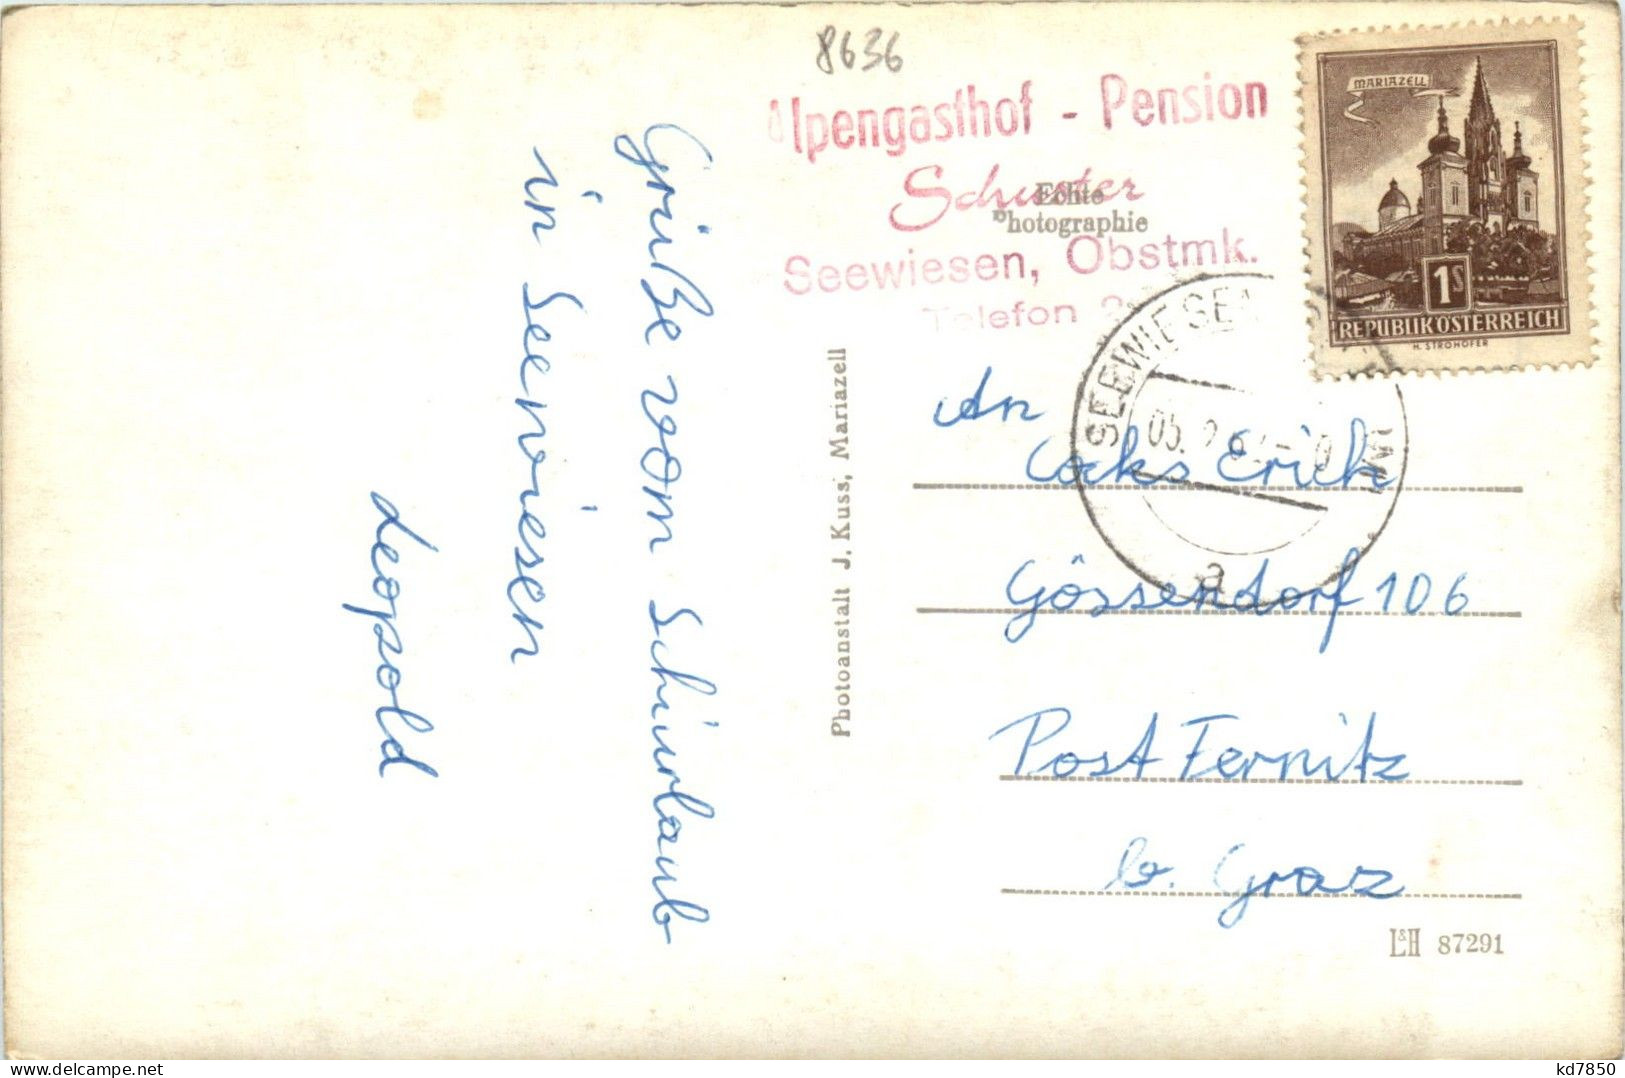 8636
Alpengasthof - Pension
Schuster
Echte
Photographie
Seewiesen, Obstmk.
Telefon
MARIAZELL
1S
REPUBLIK ÖSTERREICH
H. STROHOFER
SEEWIESEN
05.
a
Grüße vom Schiurlaub
in Seewiesen
Leopold
Photoanstalt J. Kuss, Mariazell
An
Cocks Erich
Gössendorf 106
Post Fernitz
b. Graz
L&H 87291
kd7850